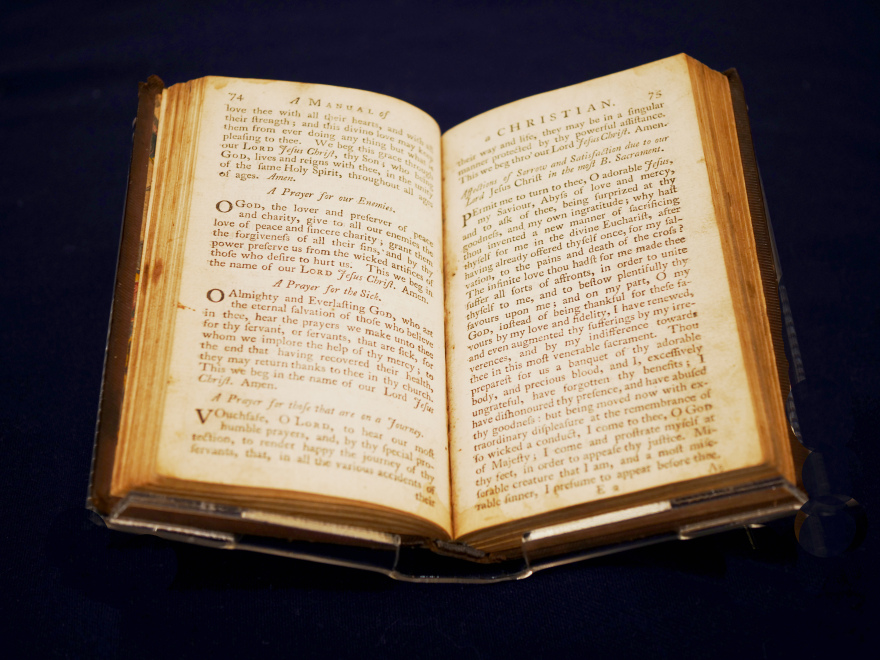 74 A MANUAL of
love thee with all their hearts, and with all
their ſtrength; and this divine love may keep
them from ever doing any thing but what is
pleaſing to thee. We beg this grace through
our LORD Jeſus Chriſt, thy Son; who being
GOD, lives and reigns with thee, in the unity
of the ſame Holy Spirit, throughout all ages
of ages. Amen.
A Prayer for our Enemies.
O GOD, the lover and preſerver of peace
and charity, give to all our enemies the
love of peace and ſincere charity; grant them
the forgiveneſs of all their ſins, and by thy
power preſerve us from the wicked artifices of
thoſe who deſire to hurt us. This we beg in
the name of our LORD Jeſus Chriſt. Amen.
A Prayer for the Sick.
O Almighty and Everlaſting GOD, who art
the eternal ſalvation of thoſe who believe
in thee, hear the prayers we make unto thee
for thy ſervant, or ſervants, that are ſick, for
whom we implore the help of thy mercy; to
the end that having recovered their health,
they may return thanks to thee in thy church.
This we beg in the name of our Lord Jeſus
Chriſt. Amen.
A Prayer for thoſe that are on a Journey.
VOuchſafe, O LORD, to hear our moſt
humble prayers, and, by thy ſpecial pro-
tection, to render happy the journey of thy
ſervants, that, in all the various accidents of
their
a CHRISTIAN. 75
their way and life, they may be in a ſingular
manner protected by thy powerful aſſiſtance.
This we beg thro' our Lord Jeſus Chriſt. Amen.
Affections of Sorrow and Satisfaction due to our
Lord Jeſus Chriſt in the moſt B. Sacrament.
PErmit me to turn to thee, O adorable Jeſus,
my Saviour, Abyſs of love and mercy,
and to aſk of thee, being ſurprized at thy
goodneſs, and my own ingratitude; why haſt
thou invented a new manner of ſacrificing
thyſelf for me in the divine Euchariſt, after
having already offered thyſelf once, for my ſal-
vation, to the pains and death of the croſs?
The infinite love thou hadſt for me made thee
ſuffer all ſorts of affronts, in order to unite
thyſelf to me, and to beſtow plentifully thy
favours upon me; and on my part, O my
GOD, inſtead of being thankful for theſe fa-
vours by my love and fidelity, I have renewed,
and even augmented thy ſufferings by my irre-
verences, and by my indifference towards
thee in this moſt venerable ſacrament. Thou
prepareſt for us a banquet of thy adorable
body, and precious blood, and I, exceſſively
ungrateful, have forgotten thy benefits; I
have diſhonoured thy preſence, and have abuſed
thy goodneſs: but being moved now with ex-
traordinary diſpleaſure at the remembrance of
ſo wicked a conduct, I come to thee, O GOD
of Majeſty; I come and proſtrate myſelf at
thy feet, in order to appeaſe thy juſtice. Mi-
ſerable creature that I am, and a moſt miſe-
rable ſinner, I preſume to appear before thee.
E 2